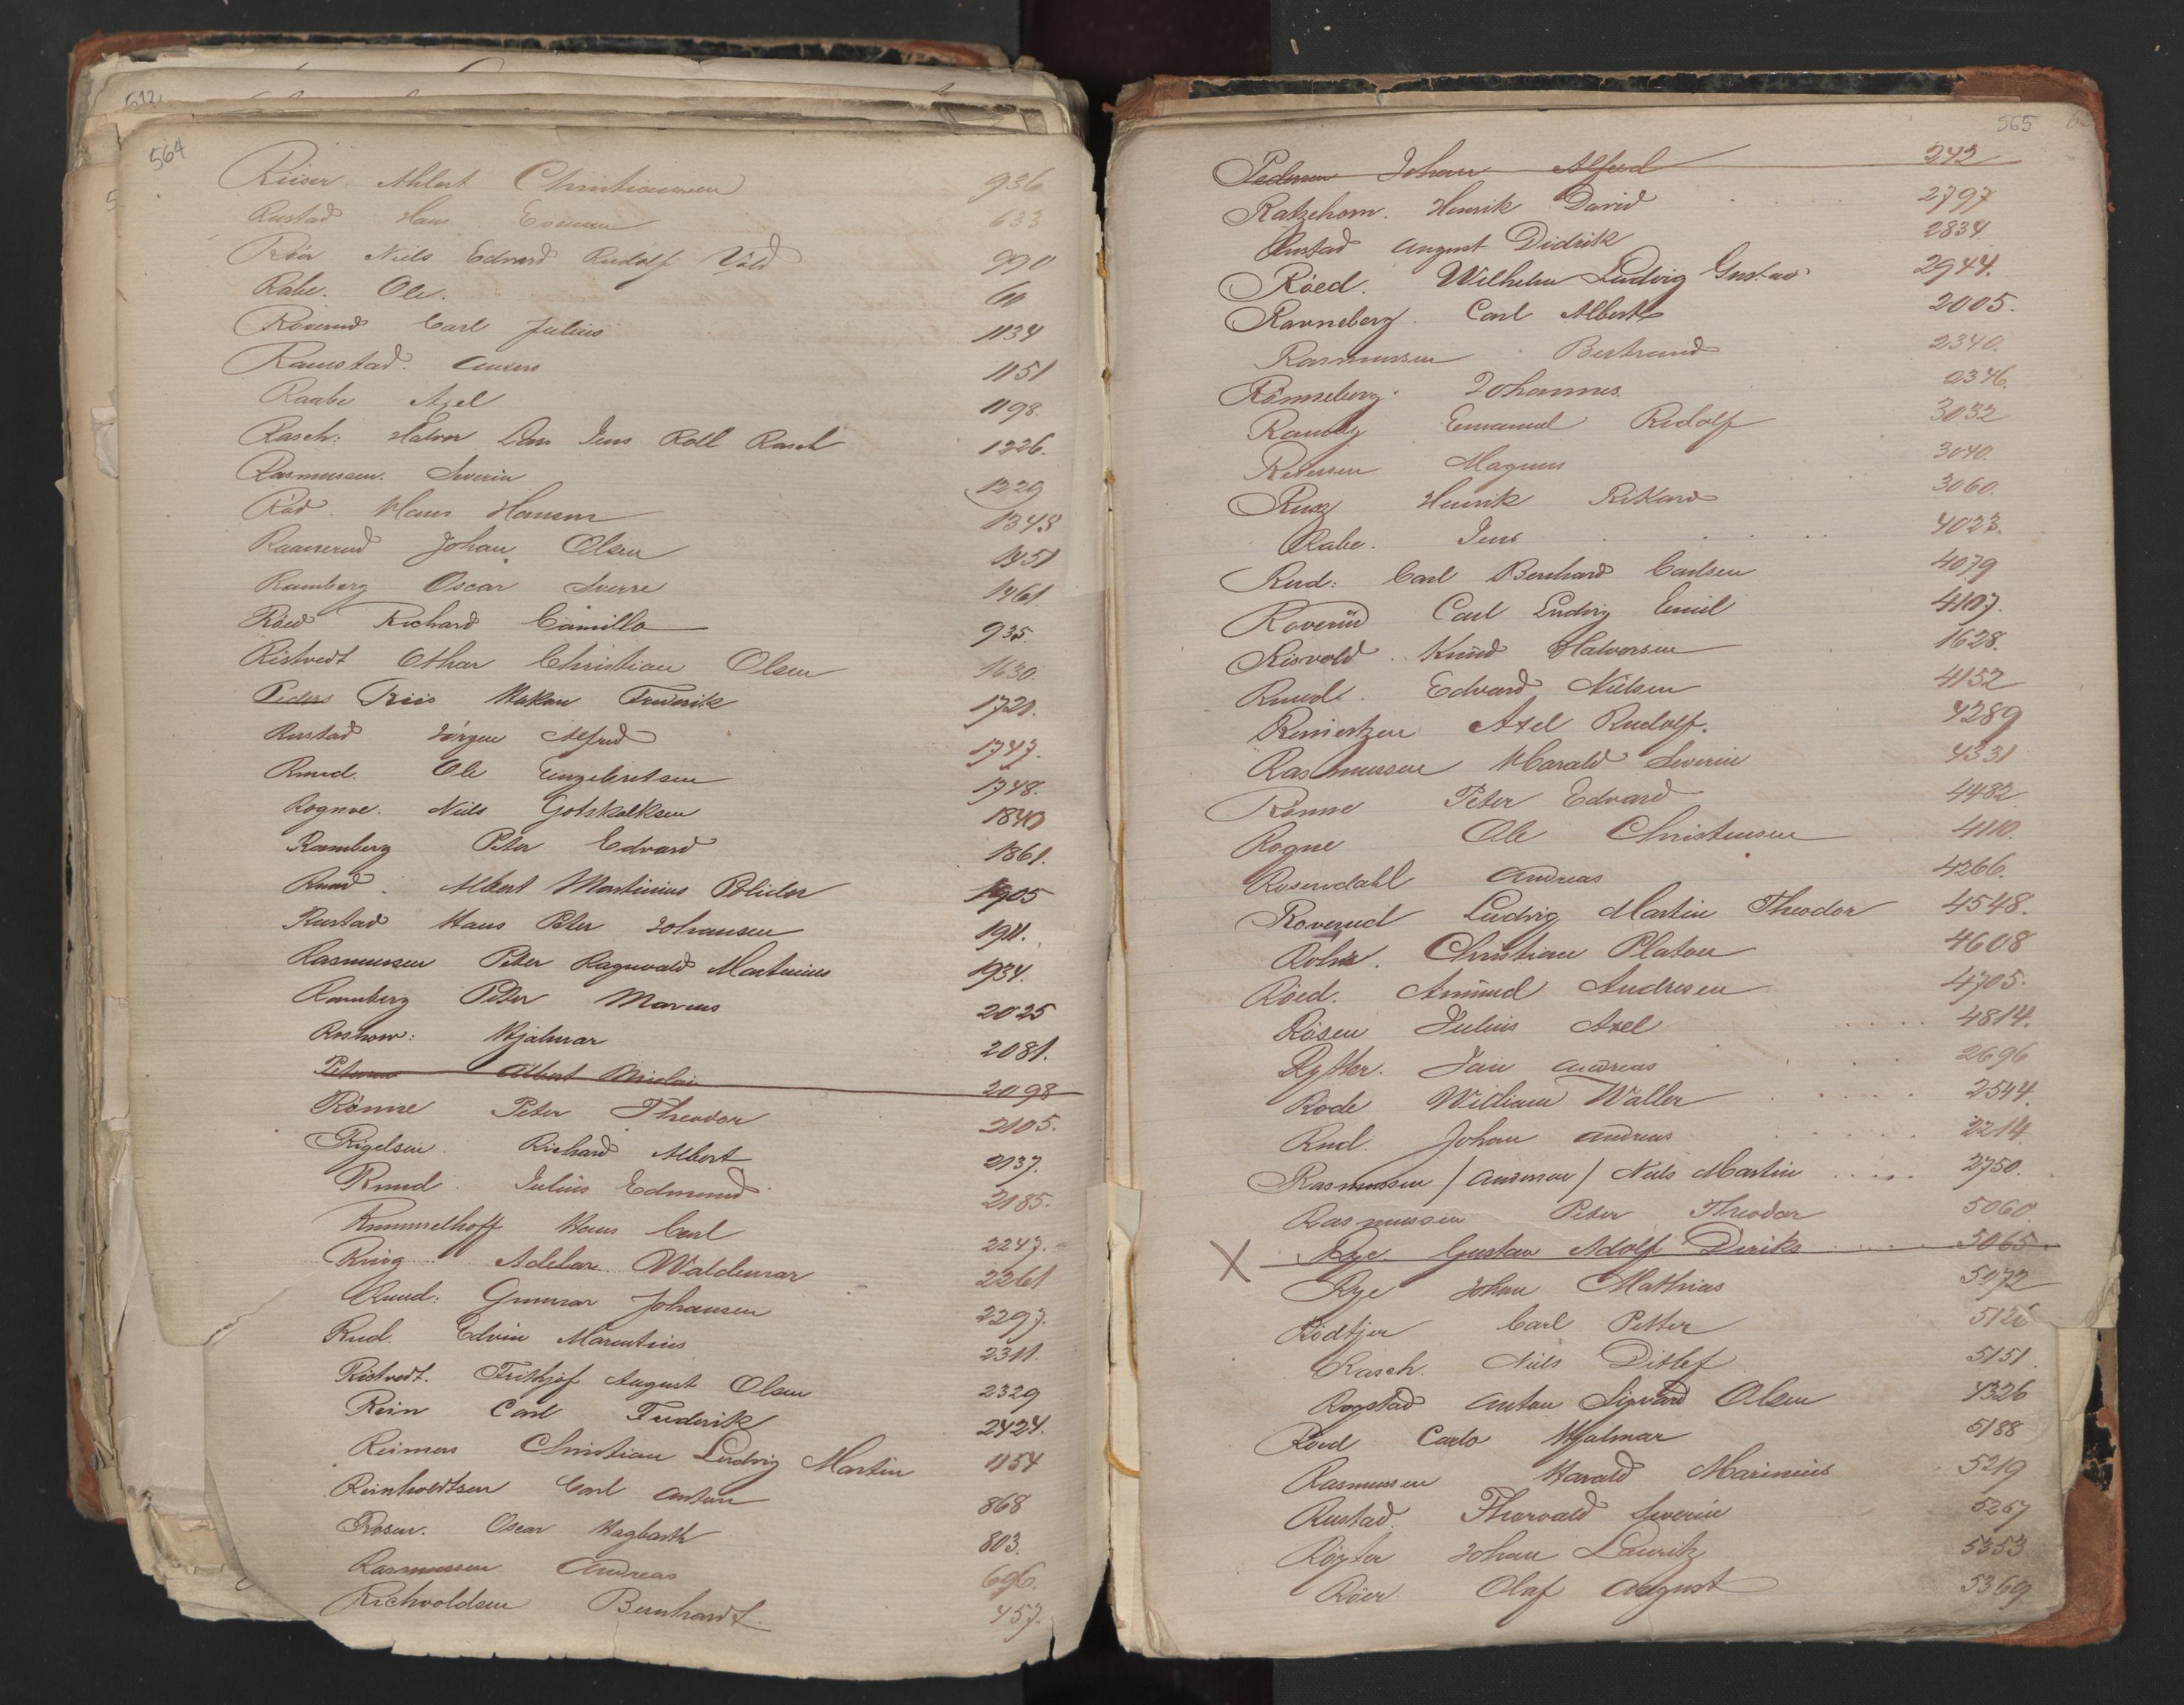 564
Riiser. Ahlert Christiansen 936
Rustad Hans Evensen 633
Röer Niels Edvard Rudolf 990
Rabe. Ole. 60
Roverud Carl Julius 1134
Ramstad. Anders 1151
Raabe Axel 1198.
Rasch: Halvor Jens Roll Rasch 1226.
Rasmussen. Severin 1229
Röd. Hans Hansen 1348
Raanerud Johan Olsen 1451
Ramberg Oscar Sverre 1461.
Röed Richard Camillo 935.
Ristvedt Othar Christian Olsen 1630.
Peders Riis Hakon Frederik 1721.
Rustad Jörgen Alfred 1747.
Ruud. Ole Engebretsen 1748.
Rognve. Niels Gotskalksen 1840
Ramberg Peter Edvard 1861.
Ruud. Albert Martinius Polidor 1905
Rustad Hans Peter Johansen 1911.
Rasmussen Peter Ragnvald Martinius 1934.
Ramberg Peter Marius 2025
Rostrow: Hjalmar 2081.
Petersen Albert Nicolai 2098
Rönne Peter Theodor 2105.
Rigelsen Richard Albert 2137.
Ruud. Julius Edmund 2185.
Rummelhoff Hans Carl 2247.
Ring Adelar Waldemar 2261
Ruud: Gunnar Johansen 2297.
Rud. Edvin Marentius 2311.
Ristvedt. Frithjof August Olsen 2329
Rein Carl Frederik 2424.
Reimers Christian Ludvig Martin 1154
Reinholdtsen Carl Anton 868
Rosen. Oscar Hagbarth 803.
Rasmussen Andreas 696.
Richvoldsen Bernhardt 457.
565
Pedersen Johan Alfred 242
Ratzehorn. Henrik David 2797
Rustad August Didrik 2834.
Röed. Wilhelm Ludvig Gustav 2944.
Ravneberg. Carl Albert 2005.
Rasmussen Bertrand 2340.
Rönneberg. Johannes. 2346.
Emanuel Rudolf 3032
Magnus 3040.
Henrik Rikard 3060.
Rabe. Jens 4023.
Rud: Carl Bernhard Carlsen 4079
Roverud Carl Ludvig Emil 4107.
Risvold. Knud Halvorsen 1628.
Ruud. Edvard Nielsen 4152
Reinertzen Axel Rudolf. 4289
Rasmussen Harald Severin 4331
Rönne Peter Edvard 4482
Rogne Ole Christensen 4110.
Rosendahl Andreas 4266.
Roverud Ludvig Martin Theodor 4548.
Christian Platou 4608
Röed. Amund Andresen 4705.
Rosen Julius Axel 4814.
Rytter. Jan Andreas 2696
Rode William Waller 2544.
Rud. Johan Andreas 2214.
Rasmussen / Andersen / Niels Martin 2750.
Rasmussen Peter Theodor 5060.
X Rye. Gustav Adolf Diriks 5065.
Rye Johan Mathias 5072
Rödtjer Carl Petter 5126
Rasch. Niels Ditlef 5151.
Rogstad Anton Sigvard Olsen 4326
Röed Carlo Hjalmar 5188
Rasmussen Harald Marinius 5219
Rustad. Thorvald Severin 5267
Johan Lauritz 5353
Röer Olaf August 5369